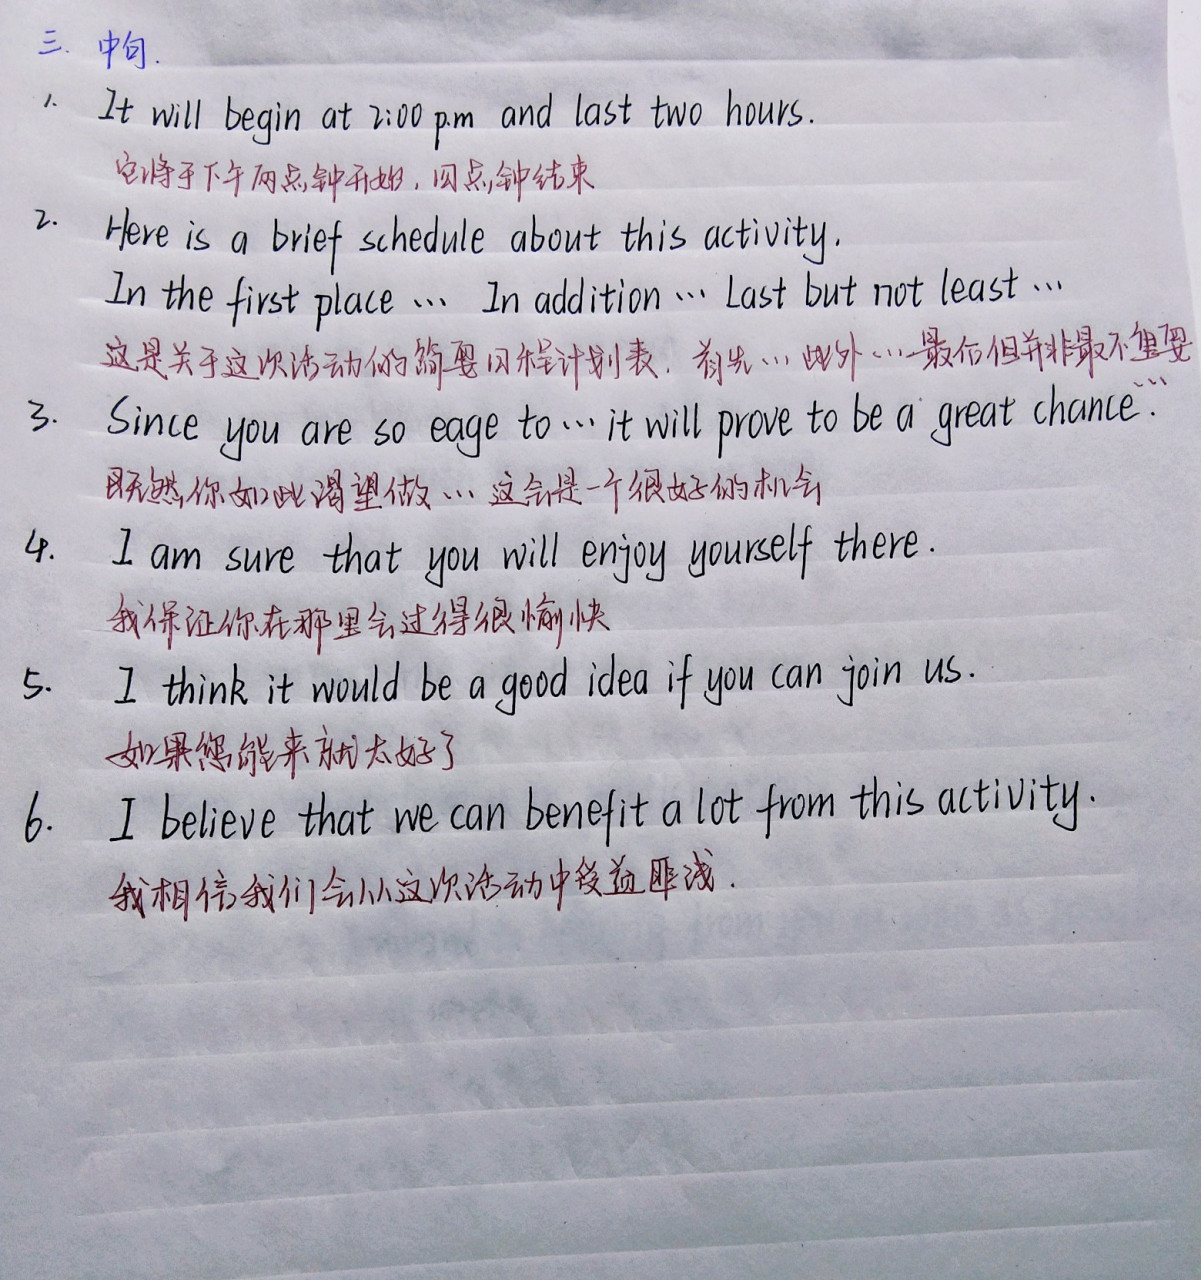 三. 中句.
1. It will begin at 2:00 p.m and last two hours.
它将于下午两点钟开始, 四点钟结束
2. Here is a brief schedule about this activity.
In the first place … In addition … Last but not least …
这是关于这次活动的简要日程计划表. 首先 … 此外 … 最后但并非最不重要 …
3. Since you are so eage to … it will prove to be a great chance.
既然你如此渴望做 … 这会是一个很好的机会
4. I am sure that you will enjoy yourself there.
我保证你在那里会过得很愉快
5. I think it would be a good idea if you can join us.
如果您能来就太好了
6. I believe that we can benefit a lot from this activity.
我相信我们会从这次活动中受益匪浅.